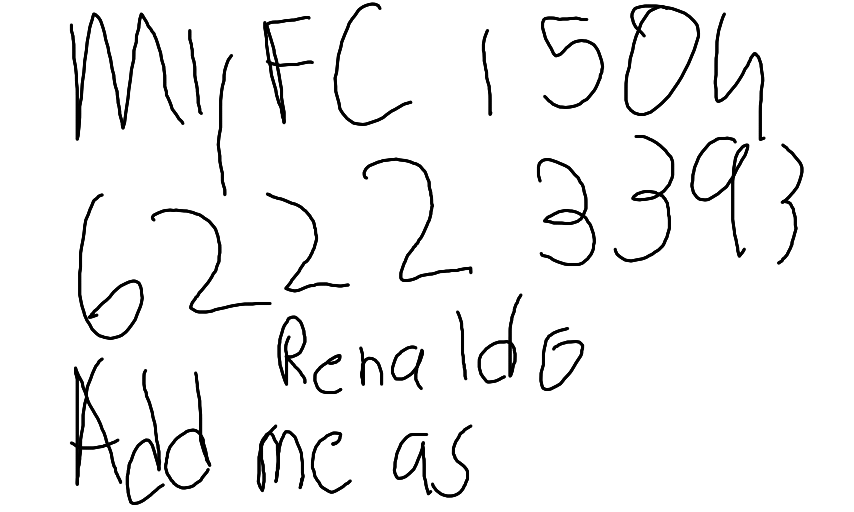 My FC 1504
6222 3393
Renaldo
Add me as